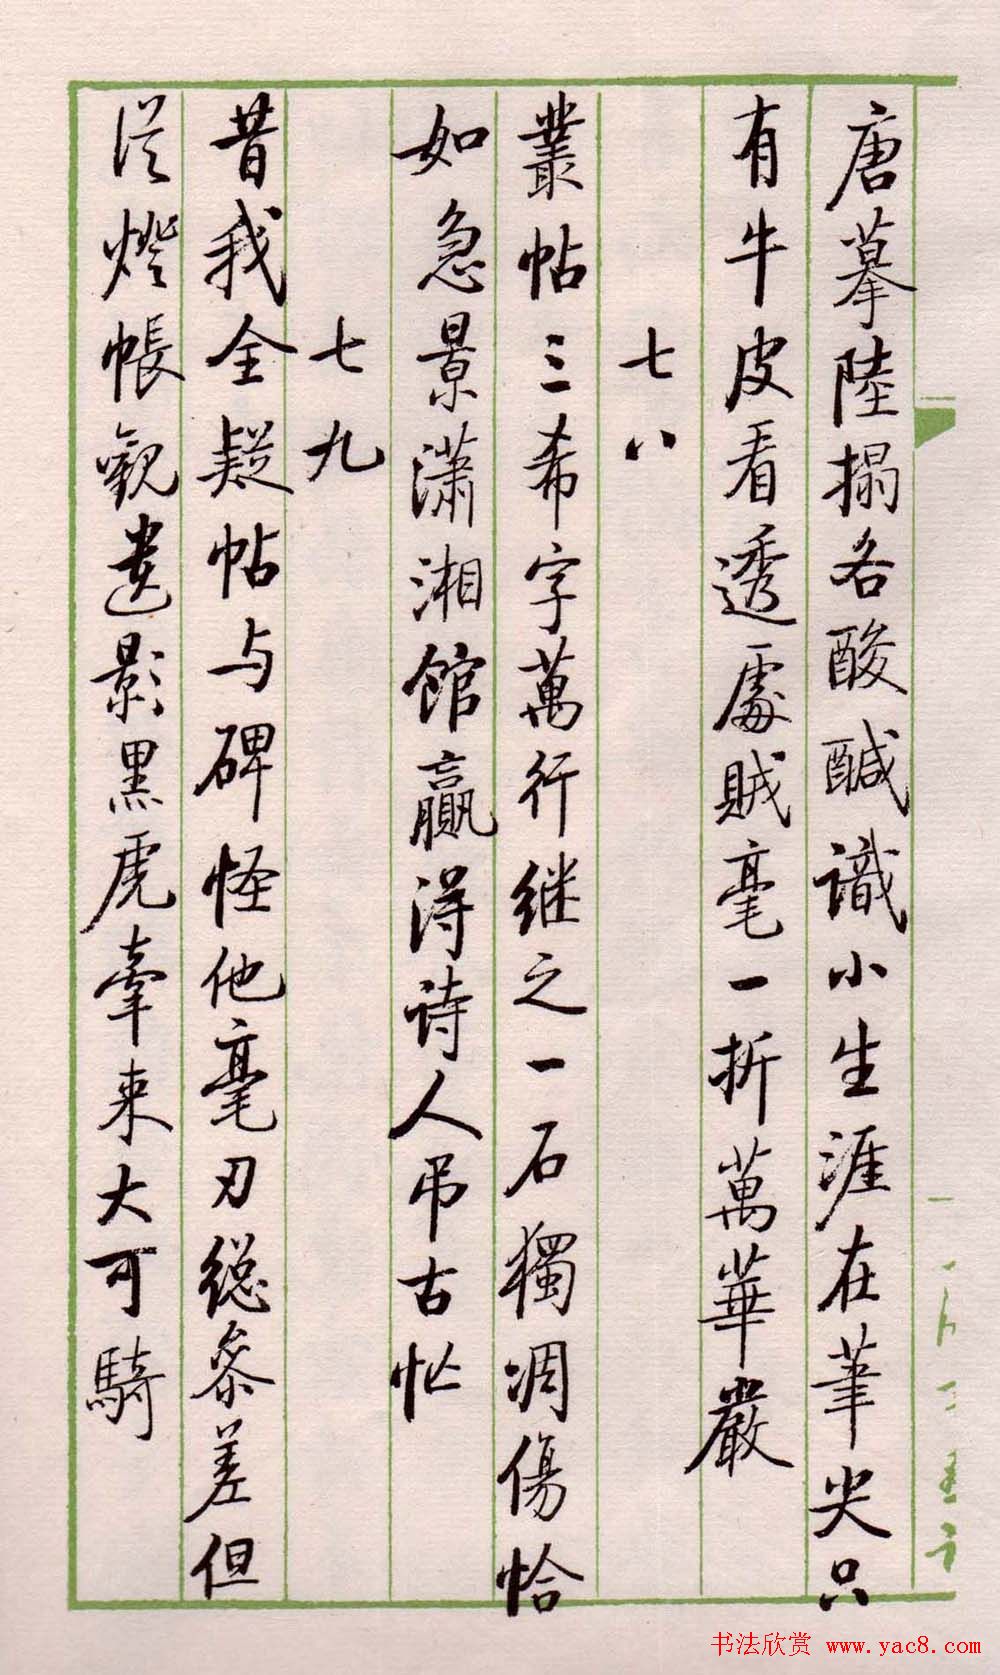 唐摹陸搨各酸醎識小生涯在筆尖只
有牛皮看透處賊毫一折萬華嚴
七八
叢帖三希字萬行继之一石獨凋傷恰
如急景瀟湘館贏得诗人弔古忙
七九
昔我全疑帖与碑怪他毫刃總参差但
從燈帳觀遺影黑虎牽来大可騎
书法欣赏 www.yac8.com